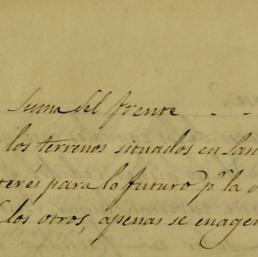 Suma del frente . . .
los terrenos situados en San
terés para lo futuro pr la
los otros, apenas se enagen